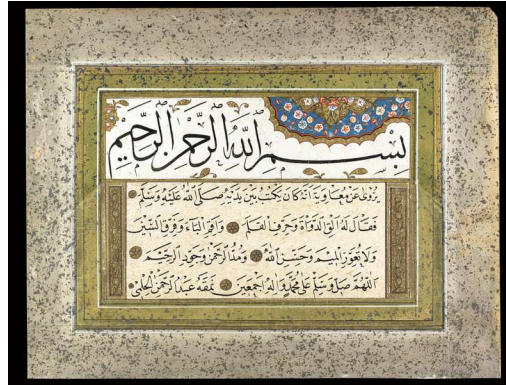 بِسْمِ اللَّهِ الرَّحْمٰنِ الرَّحِيمِ
يُرْوٰى عَنْ مُعَاوِيَةَ اَنَّهُ كَانَ يَكْتُبُ بَيْنَ يَدَيْهِ صَلَّى اللهُ عَلَيْهِ وَسَلَّمَ
فَقَالَ لَهُ اَلِقِ الدَّوَاةَ وَحَرِّفِ الْقَلَمَ وَاَقِمِ الْبَاءَ وَفَرِّقِ السِّينَ
وَلَا تُعَوِّرِ الْمِيمَ وَحَسِّنِ اللهَ وَمُدَّ الرَّحْمٰنَ وَجَوِّدِ الرَّحِيمَ
اَللّٰهُمَّ صَلِّ وَسَلِّمْ عَلٰى مُحَمَّدٍ وَاٰلِهِ اَجْمَعِينَ نَمَقَهُ عَبْدُ الرَّحْمٰنِ